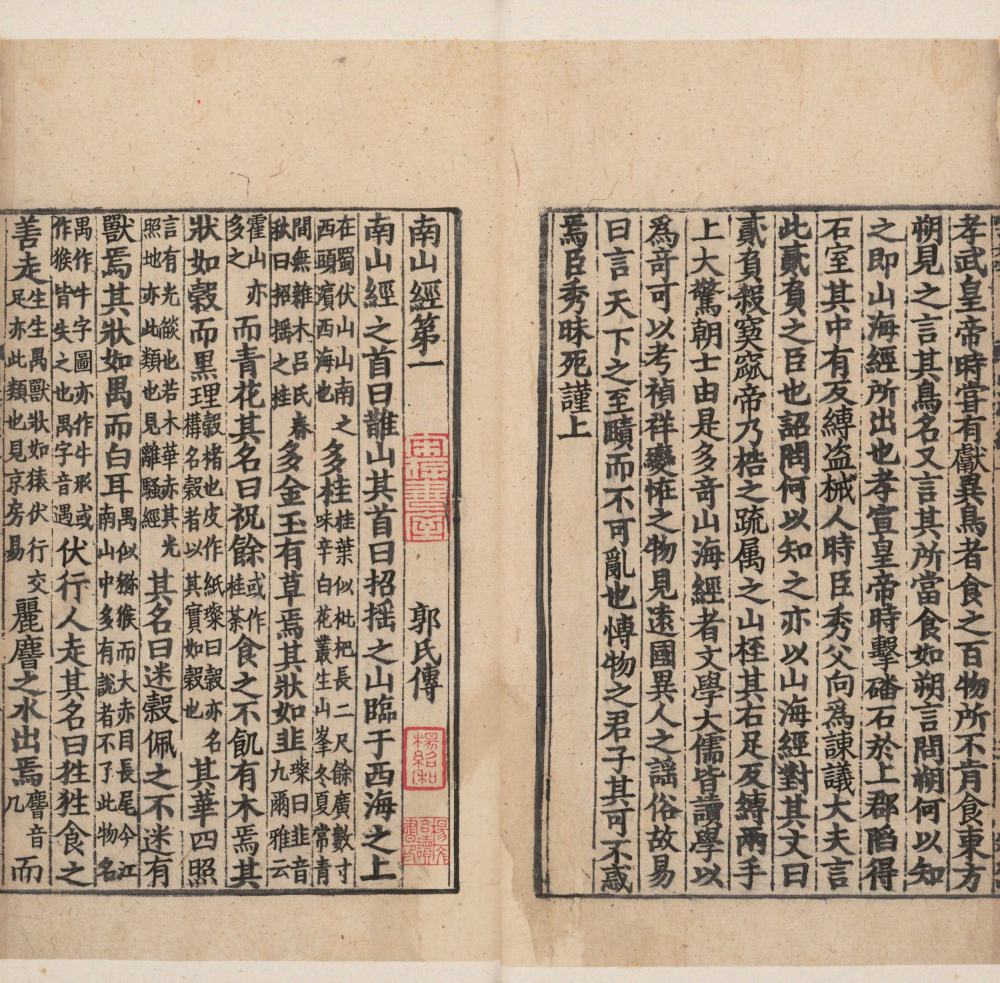 孝武皇帝時嘗有獻異鳥者食之百物所不肯食東方
朔見之言其鳥名又言其所當食如朔言問朔何以知
之即山海經所出也孝宣皇帝時擊磻石於上郡䧟得
石室其中有反縛盗械人時臣秀父向為諫議大夫言
此貳負之臣也詔問何以知之亦以山海經對其文曰
貳負殺窫窳帝乃梏之疏属之山桎其右足反縛兩手
上大驚朝士由是多竒山海經者文學大儒皆讀學以
為竒可以考禎祥變恠之物見遠國異人之謡俗故易
曰言天下之至賾而不可亂也愽物之君子其可不惑
焉臣秀昧死謹上
南山經第一 郭氏傳
楊紹和
南山經之首曰䧿山其首曰招摇之山臨于西海之上
在蜀伏山山南之西頭濱西海也多桂桂葉似枇杷長二尺餘廣數寸味辛白花叢生山峯冬夏常青
間無雜木吕氏春秋曰招摇之桂多金玉有草焉其狀如韭璨曰韭音九爾雅云
霍山亦多之而青花其名曰祝餘或作桂荼食之不飢有木焉其
狀如榖而黒理榖楮也皮作紙璨曰榖亦名構名榖者以其實如榖也其華四照
言有光燄也若木華赤其光照地亦此類也見離騷經其名曰迷榖佩之不迷有
獸焉其狀如禺而白耳禺似獼猴而大赤目長尾今江南山中多有說者不了此物名
禺作牛字圖亦作牛形或作猴皆失之也禺字音遇伏行人走其名曰狌狌食之
善走生生禺獸狀如猿伏行交足亦此類也見京房易麗𪊨之水出焉𪊨音几而